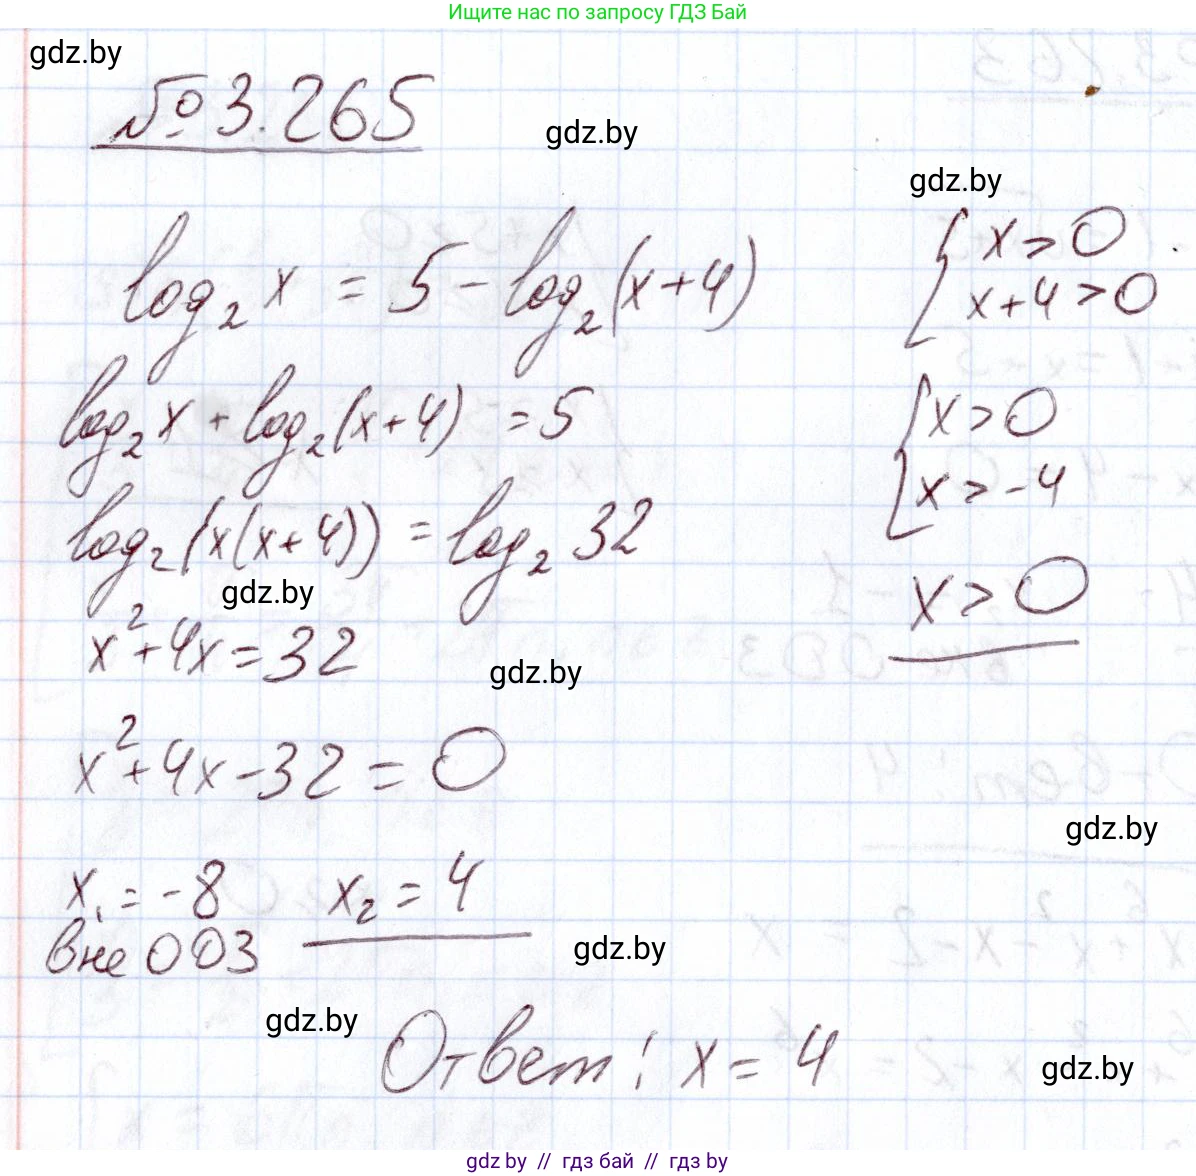 Ищите нас по запросу ГДЗ Бай
gdz.by
№ 3.265
gdz.by
gdz.by
log₂ x = 5 - log₂(x+4)
{ x > 0
x+4 > 0
log₂ x + log₂(x+4) = 5
{ x > 0
x > -4
log₂(x(x+4)) = log₂ 32
x > 0
gdz.by
x²+4x=32
gdz.by
x²+4x-32=0
gdz.by
x₁ = -8 x₂ = 4
вне ОДЗ
gdz.by
gdz.by
Ответ: x = 4
gdz.by
gdz by // гдз бай // гдз by